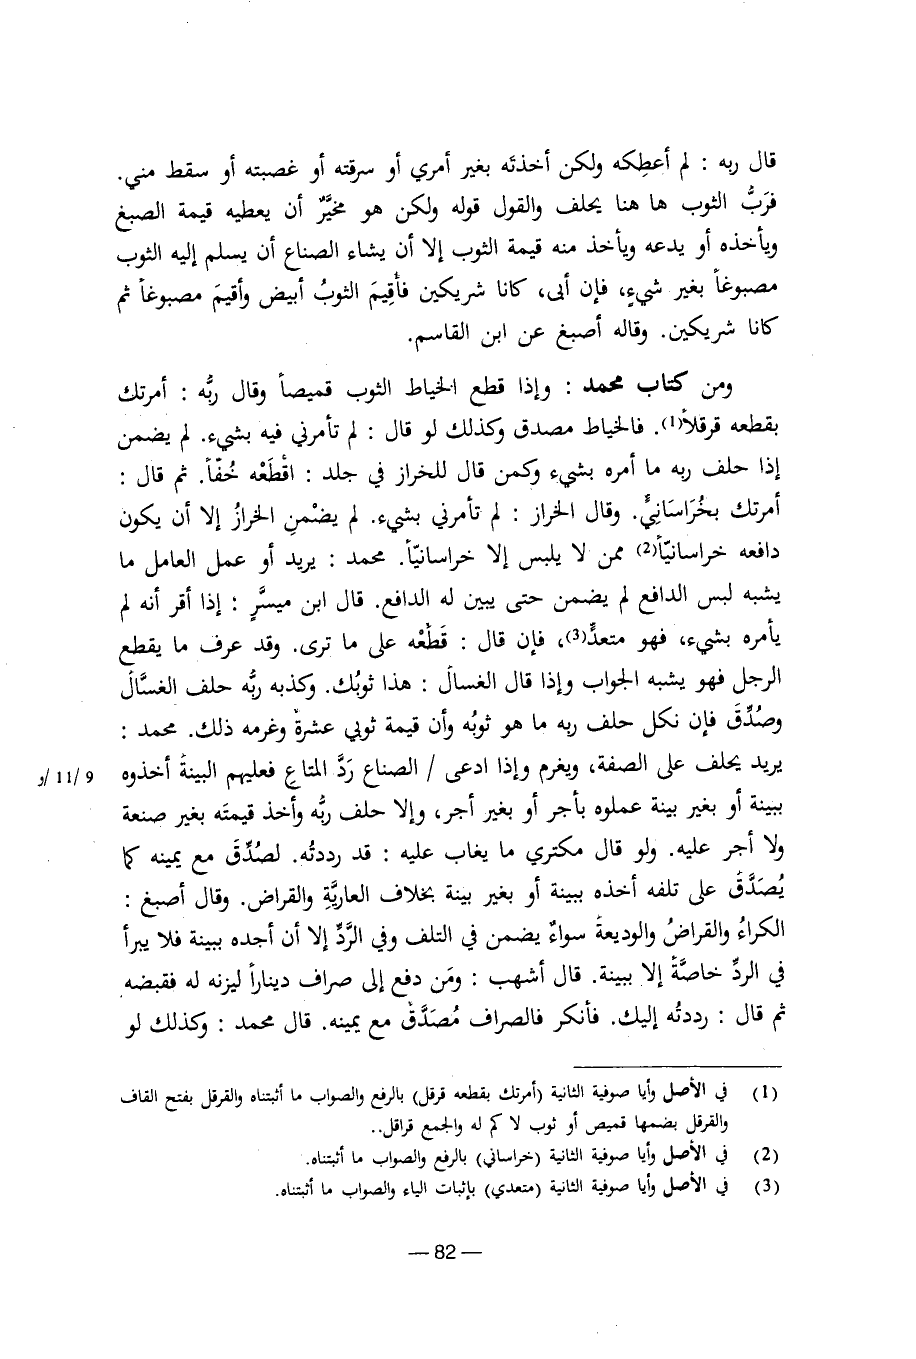 قال ربه : لم أعطِكه ولكن أخذتَه بغير أمري أو سرقته أو غصبته أو سقط مني.
فرَبُّ الثوب ها هنا يحلف والقول قوله ولكن هو مخيَّرٌ أن يعطيه قيمة الصبغ
ويأخذه أو يدعه ويأخذ منه قيمة الثوب إلا أن يشاء الصناع أن يسلم إليه الثوب
مصبوغاً بغير شيءٍ، فإن أبى، كانا شريكين فأُقِيمَ الثوبُ أبيض وأقيمَ مصبوغاً ثم
كانا شريكين. وقاله أصبغ عن ابن القاسم.
ومن كتاب محمد : وإذا قطع الخياط الثوب قميصاً وقال ربُّه : أمرتك
بقطعه قرقلاً(1). فالخياط مصدق وكذلك لو قال : لم تأمرني فيه بشيء. لم يضمن
إذا حلف ربه ما أمره بشيء وكمن قال للخراز في جلد : اقْطَعْه خُفّاً. ثم قال :
أمرتك بخُرَاسَانِيٍّ. وقال الخراز : لم تأمرني بشيء. لم يضْمنِ الخرازُ إلا أن يكون
دافعه خراسانيّاً(2) ممن لا يلبس إلا خراسانيّاً. محمد : يريد أو عمل العامل ما
يشبه لبس الدافع لم يضمن حتى يبين له الدافع. قال ابن ميسَّرٍ : إذا أقر أنه لم
يأمره بشيء، فهو متعدٍّ(3)، فإن قال : قَطِّعْه على ما ترى. وقد عرف ما يقطع
الرجل فهو يشبه الجواب وإذا قال الغسالُ : هذا ثوبُك. وكذبه ربُّه حلف الغسَّالُ
وصُدِّقَ فإن نكل حلف ربه ما هو ثوبُه وأن قيمة ثوبي عشرةٌ وغرمه ذلك. محمد :
يريد يحلف على الصفة، ويغرم وإذا ادعى / الصناع رَدَّ المتاع فعليهم البينةُ أخذوه
9 /11 /و
ببينة أو بغير بينة عملوه بأجر أو بغير أجر، وإلا حلف ربُّه وأخذ قيمتَه بغير صنعة
ولا أجر عليه. ولو قال مكتري ما يغاب عليه : قد رددتُه. لصُدِّقَ مع يمينه كما
يُصَدَّقُ على تلفه أخذه ببينة أو بغير بينة بخلاف العاريَّةِ والقراض. وقال أصبغ :
الكراءُ والقراضُ والوديعةُ سواءٌ يضمن في التلف وفي الرَّدِّ إلا أن أجده ببينة فلا يبرأ
في الردِّ خاصَّةً إلا ببينة. قال أشهب : ومَن دفع إلى صراف ديناراً ليزنه له فقبضه
ثم قال : رددتُه إليك. فأنكر فالصراف مُصَدَّقٌ مع يمينه. قال محمد : وكذلك لو
(1) في الأصل وأيا صوفية الثانية (أمرتك بقطعه قرقل) بالرفع والصواب ما أثبتناه والقرقل بفتح القاف
والقرقل بضمها قميص أو ثوب لا كم له والجمع قراقل..
(2) في الأصل وأيا صوفية الثانية (خراساني) بالرفع والصواب ما أثبتناه.
(3) في الأصل وأيا صوفية الثانية (متعدي) بإثبات الياء والصواب ما أثبتناه.
— 82 —